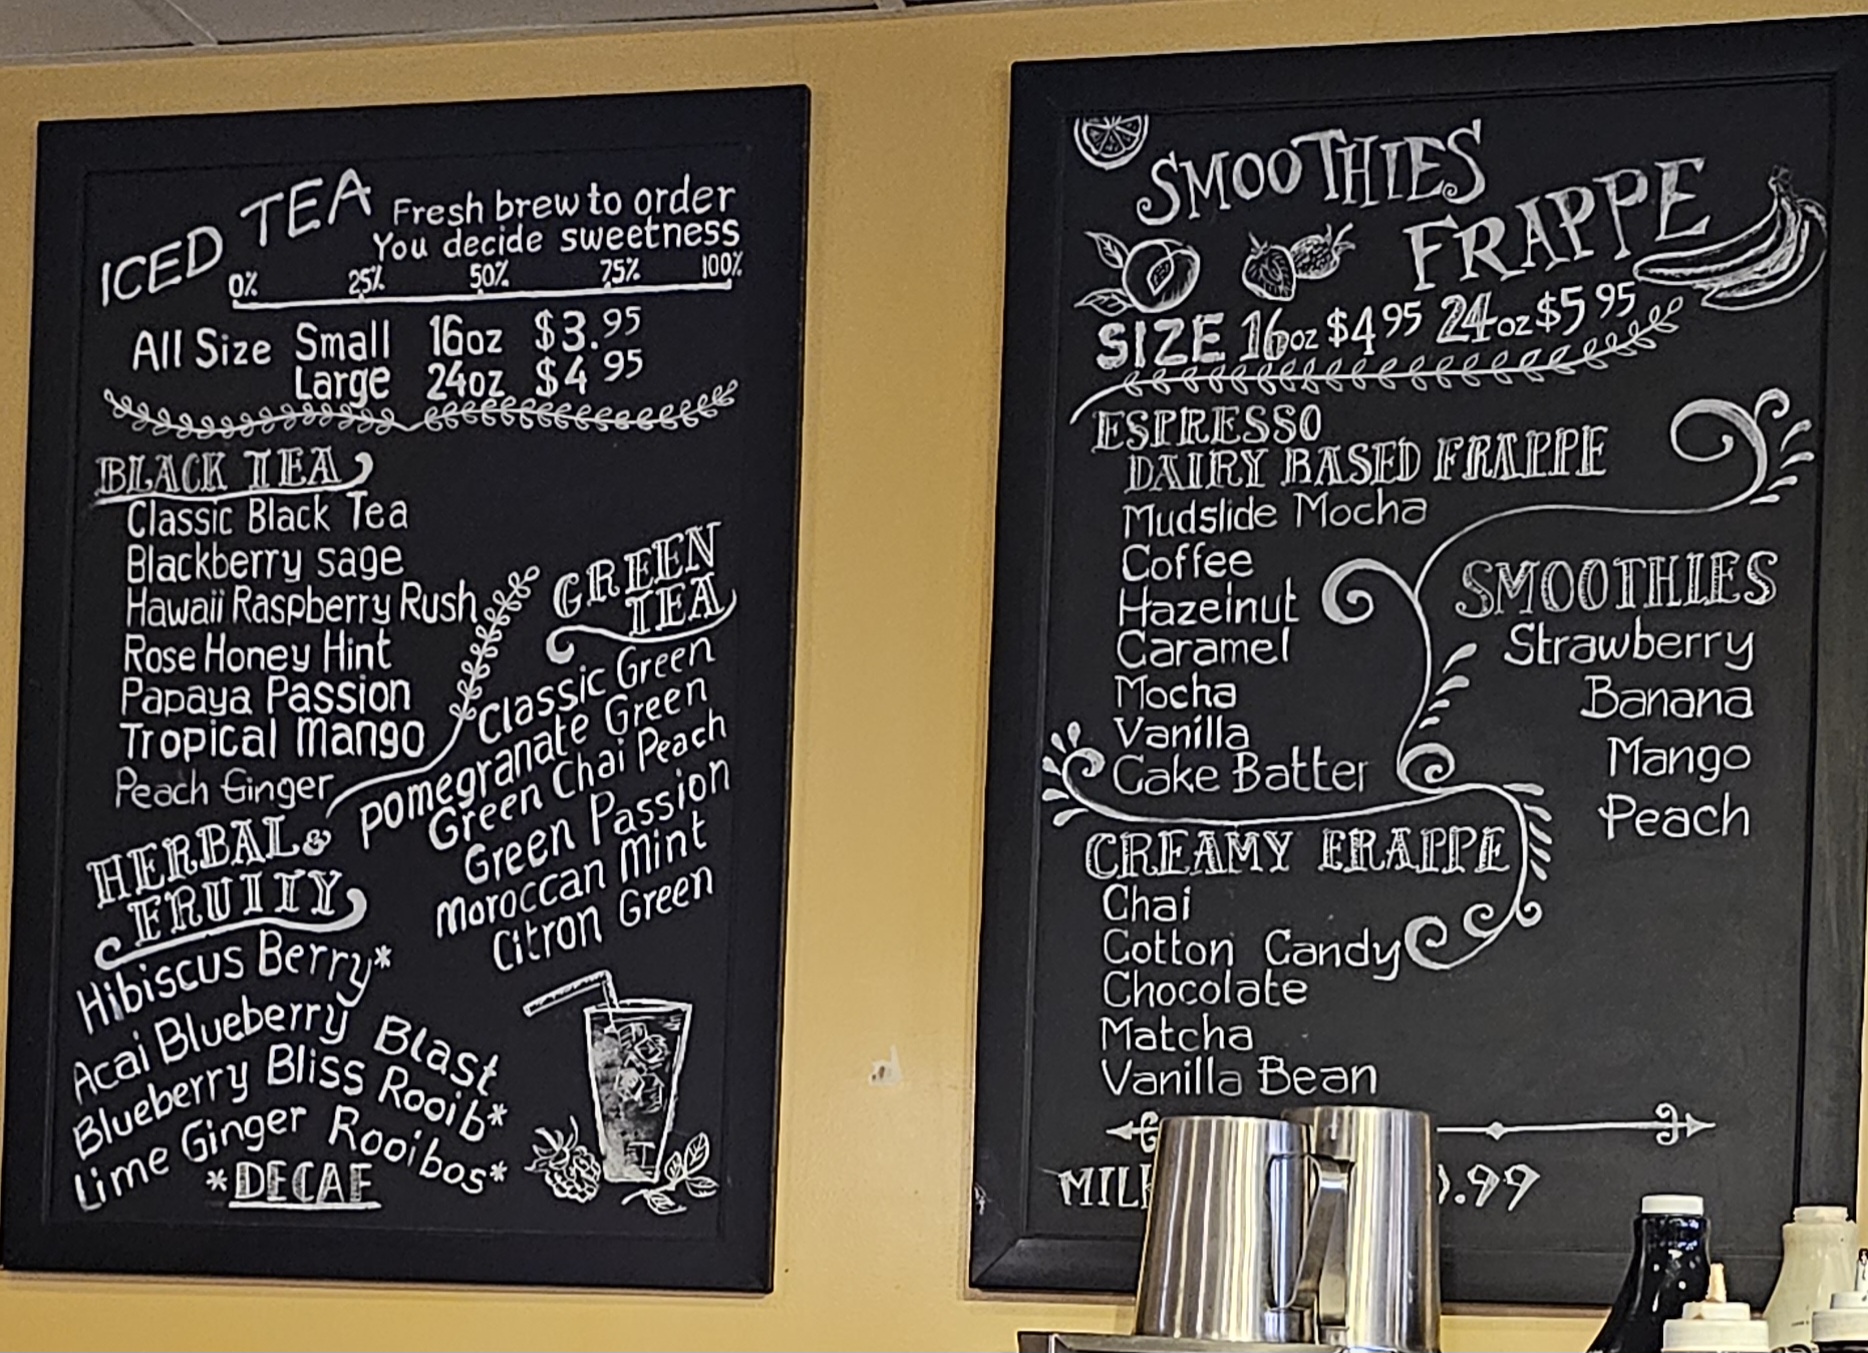 ICED TEA
Fresh brew to order
You decide sweetness
0% 25% 50% 75% 100%
All Size Small 16oz $3.95
Large 24oz $4 95
BLACK TEA
Classic Black Tea
Blackberry sage
Hawaii Raspberry Rush
Rose Honey Hint
Papaya Passion
Tropical Mango
Peach Ginger
GREEN
TEA
Classic Green
Pomegranate Green
Green Chai Peach
Green Passion
Moroccan Mint
Citron Green
HERBAL &
FRUITY
Hibiscus Berry*
Acai Blueberry Blast
Blueberry Bliss Rooib*
Lime Ginger Rooibos*
*DECAF
SMOOTHIES
FRAPPE
SIZE 16oz $4 95 24oz $5 95
ESPRESSO
DAIRY BASED FRAPPE
Mudslide Mocha
Coffee
Hazelnut
Caramel
Mocha
Vanilla
Cake Batter
SMOOTHIES
Strawberry
Banana
Mango
Peach
CREAMY FRAPPE
Chai
Cotton Candy
Chocolate
Matcha
Vanilla Bean
.99